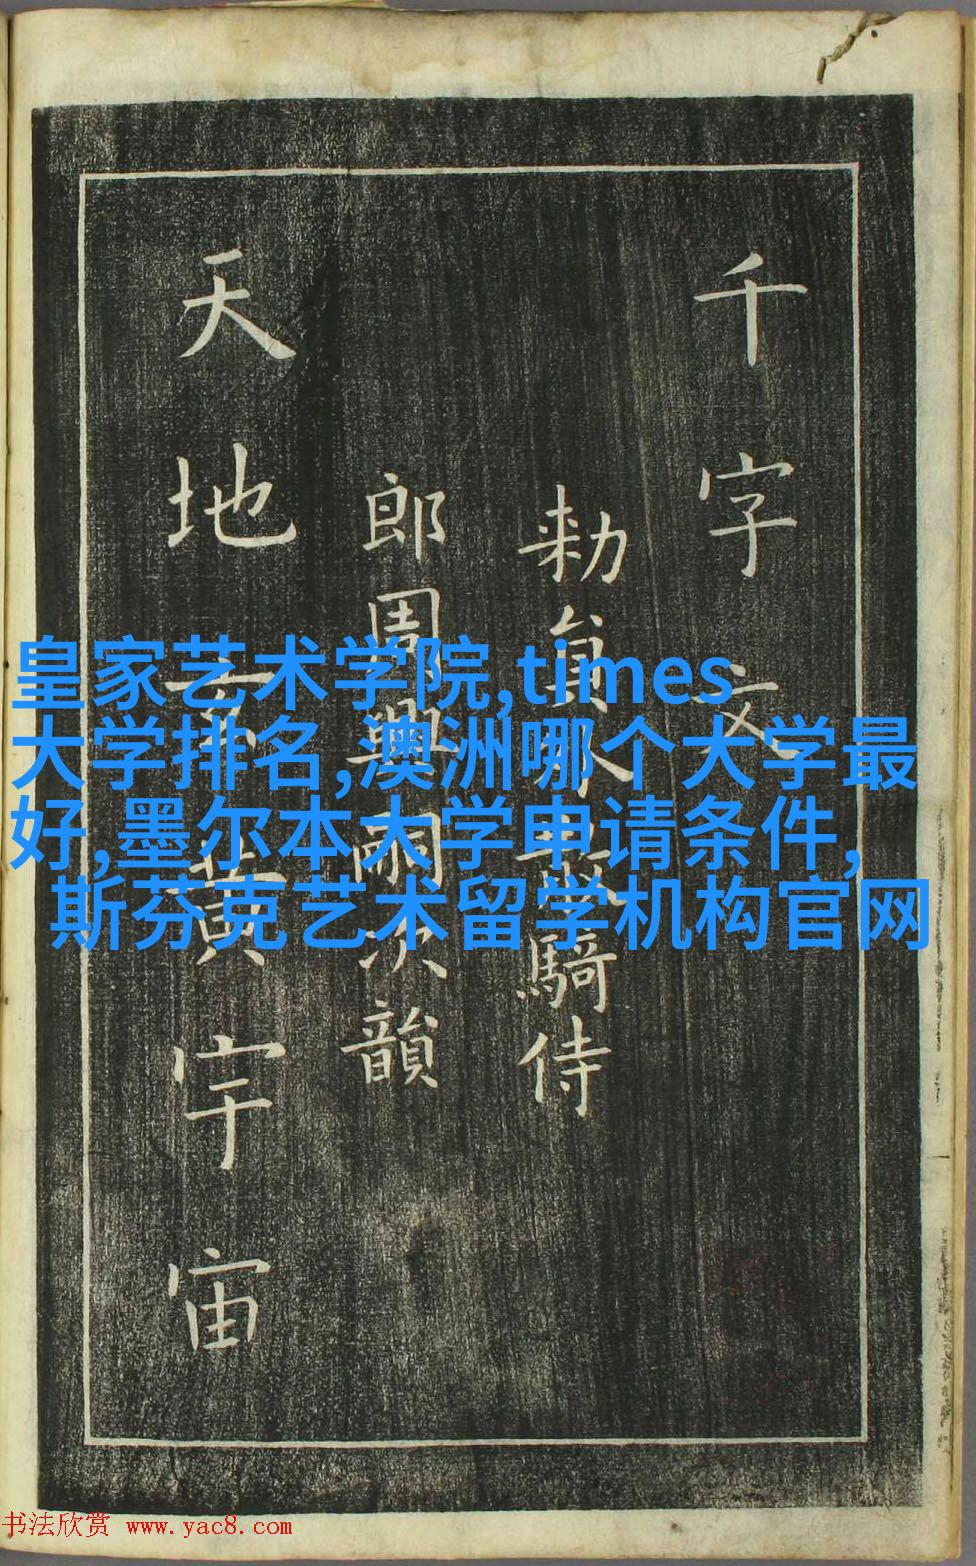 千字文
勑貟外散騎侍
郎周興嗣次韻
天地玄黃宇宙
皇家艺术学院,times
大学排名,澳洲哪个大学最
好,墨尔本大学申请条件,
斯芬克艺术留学机构官网
书法欣赏 www.yac8.com